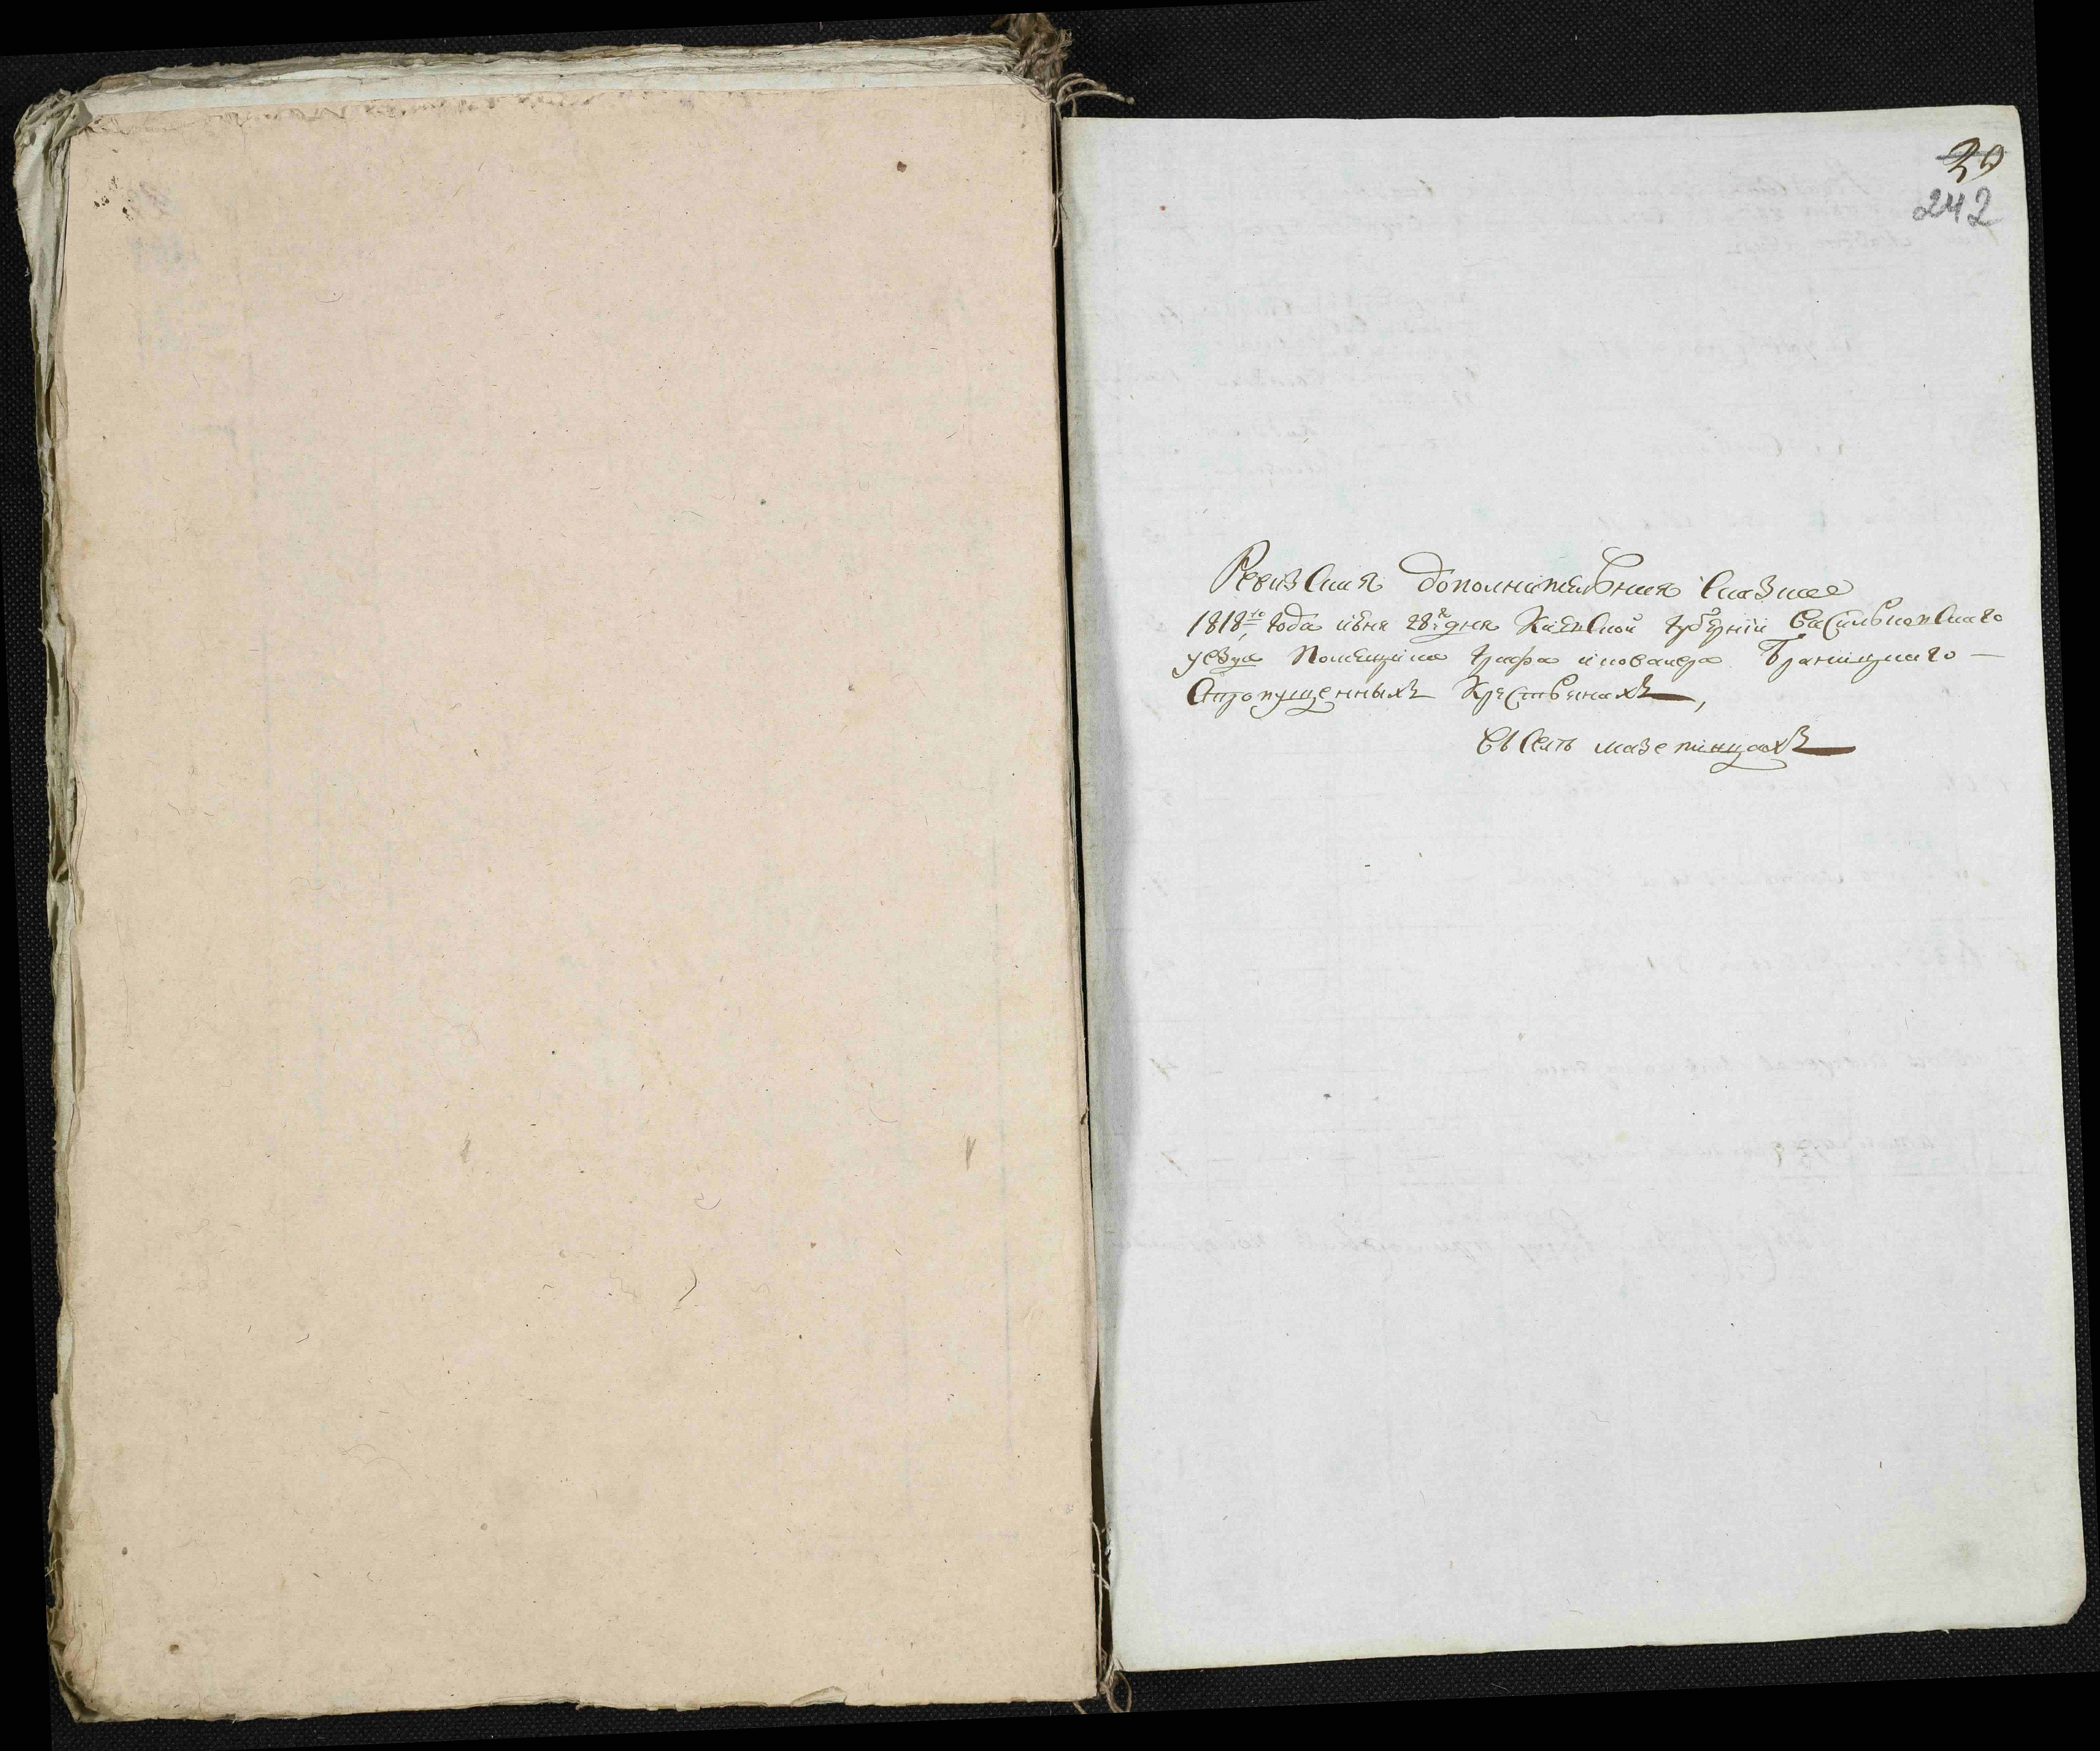 29
242
Ревизская дополнительная сказка
1818го года июня 28го дня Киевской губернии Васильковскаго
уезда Помещика графа и ковалера Браницкаго —
о пропущенныхъ Крестьянахъ,
въ Селѣ мазепинцахъ